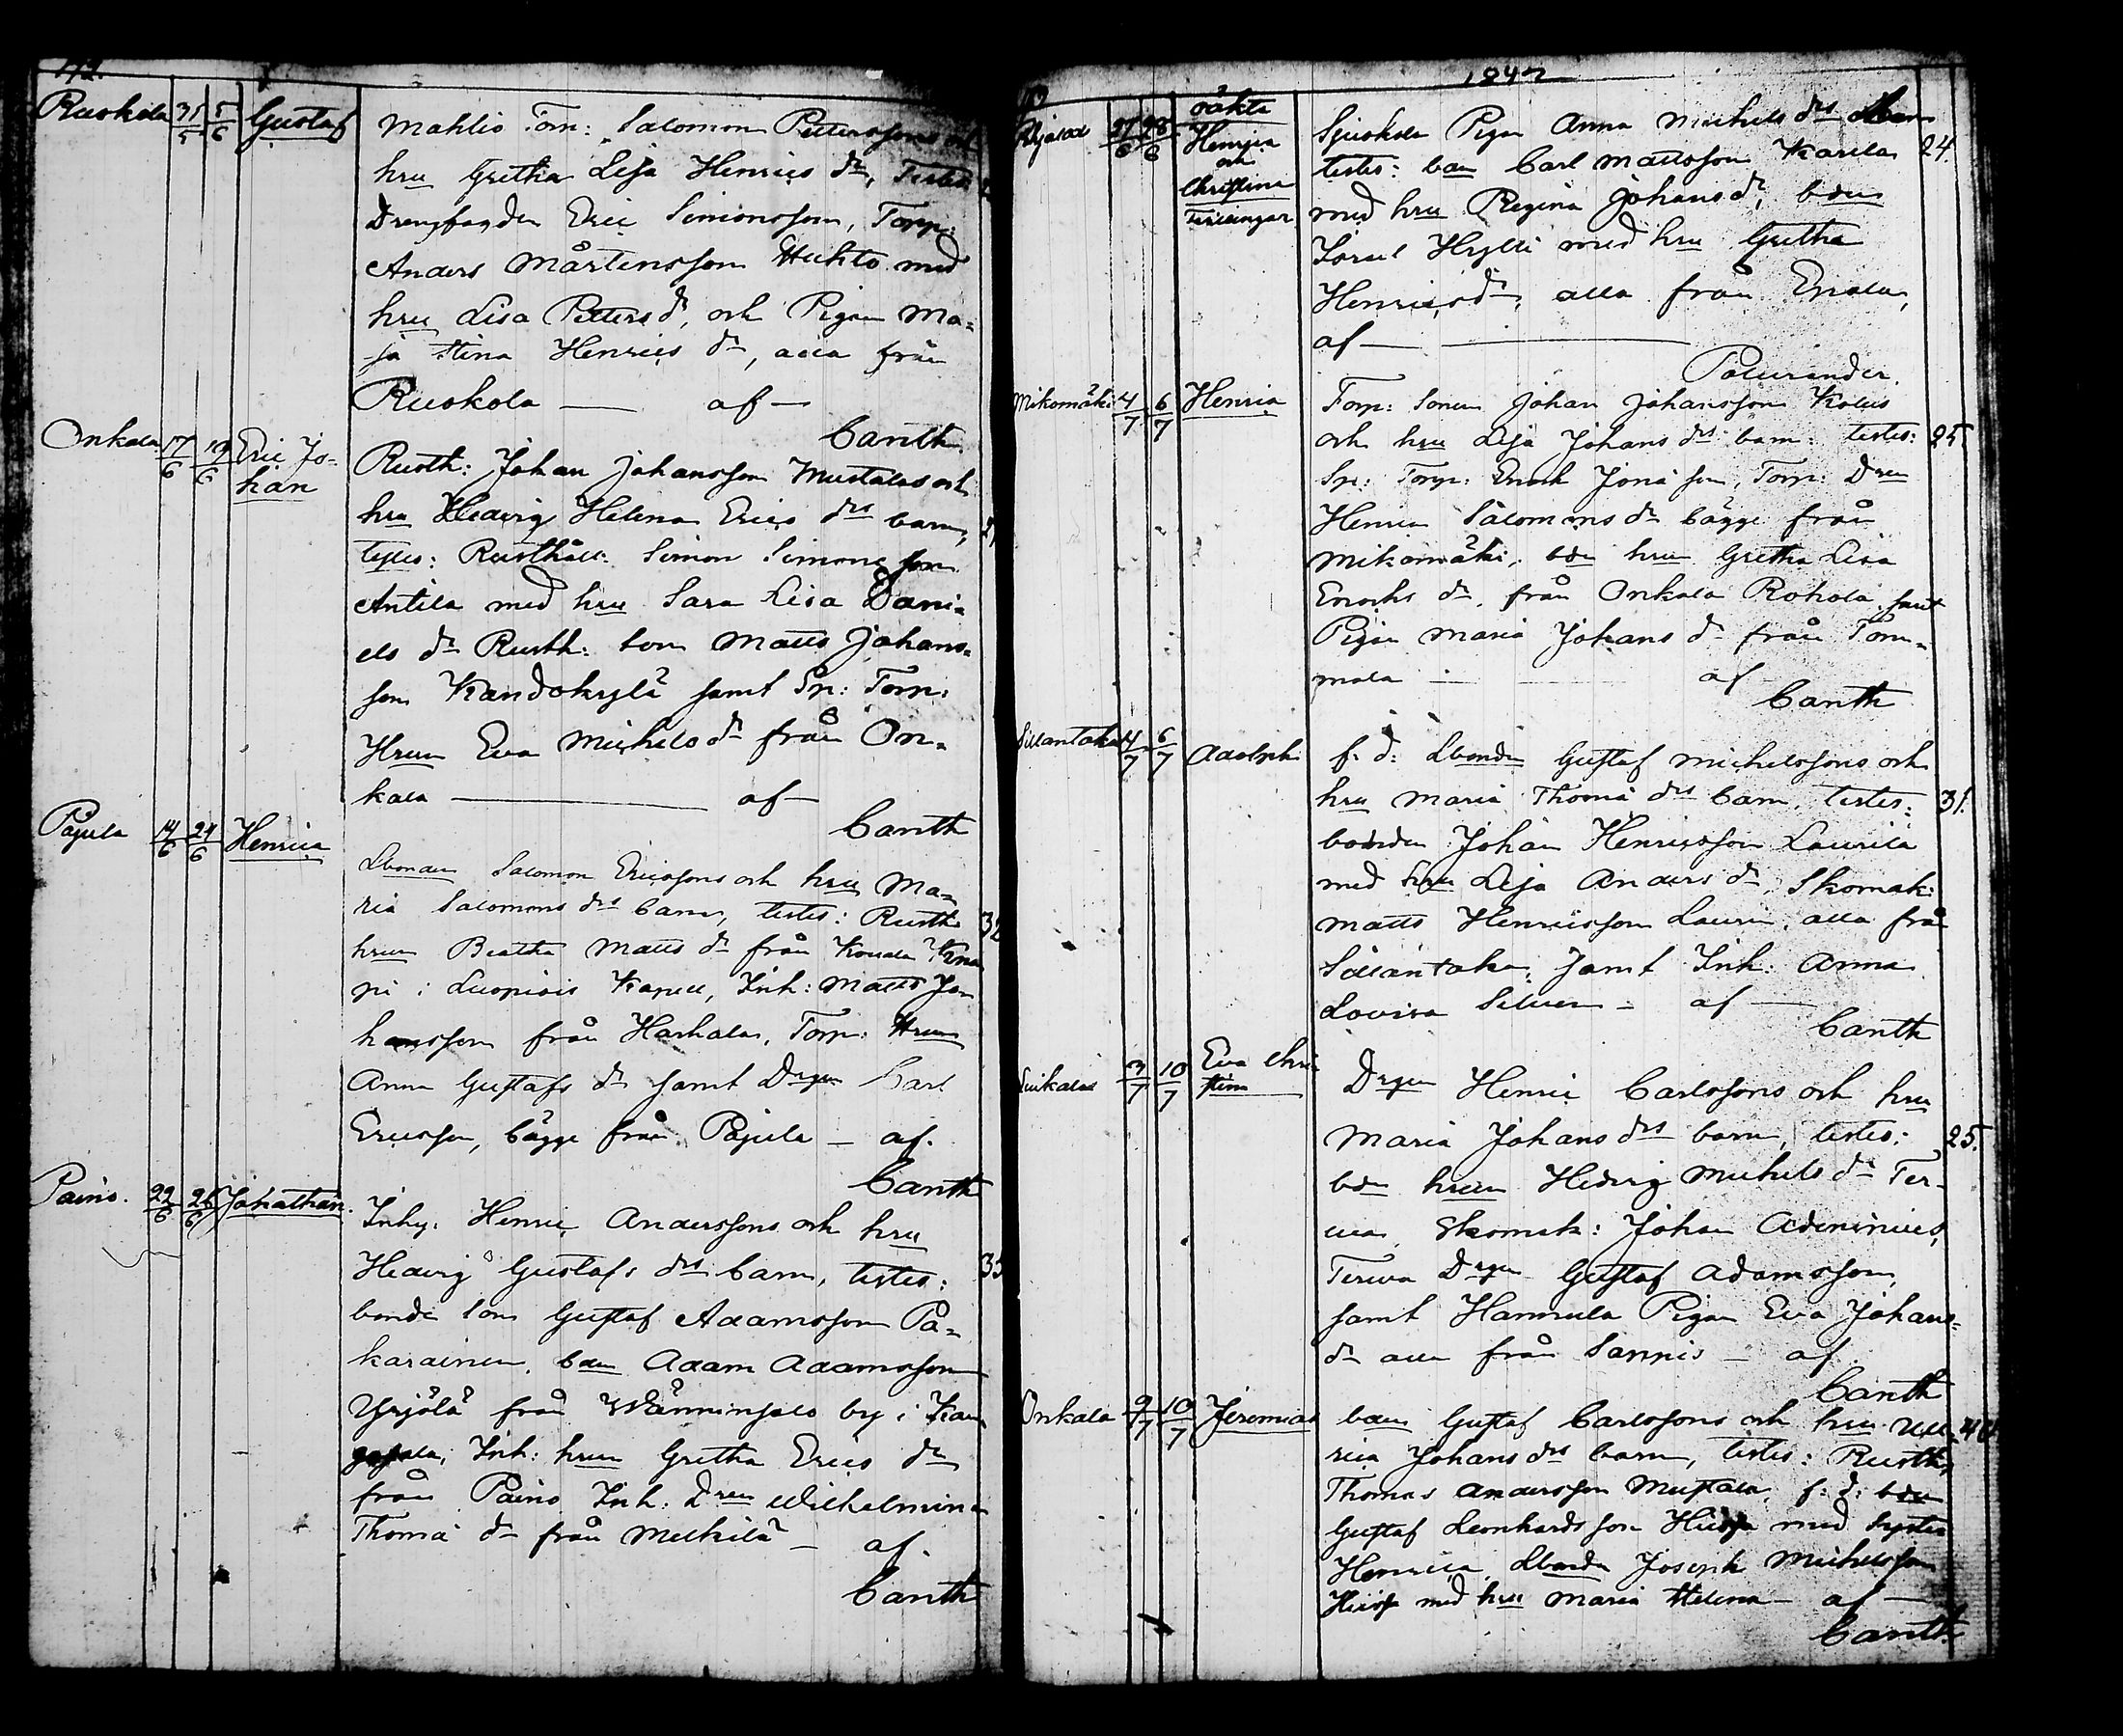 172.
Ruokola 31/5 5/6 Gustaf
Mahlio Torp: Salomon Petterssons och
hru Gretha Lisa Henrics dr, Testes
Drengfogden Eric Simonsson, Torp:
Anders Mårtensson Huhto med
hru Lisa Petters dr, och Pigan Ma-
ja Stina Henrics dr, alla från
Ruokola — af —
Canth
Onkala 17/6 19/6 Eric Jo-
han
Rusth: Johan Johansson Mustalas och
hru Hedvig Helena Erics drs barn,
testes: Rusthåll: Simon Simonsson
Antila med hru Sara Lisa Dani-
els dr Rusth: son Matts Johans-
son Kandokylä samt Sp: Torp:
Hrun Eva Michels dr från On-
kala — af —
Canth
Pajula 14/6 24/6 Henrica
Lbonden Salomon Ericssons och hru Ma-
ria Salomons drs barn, testes: Rusth 32
hrun Beatha Matts dr från
pi i Luopiois Kapell, Inh: Matts Jo-
hansson från Harhala, Torp: Hrun
Anna Gustafs dr samt Drgen Carl
Ericsson, bägge från Pajula — af.
Canth
Painó. 22/6 26/6 Johathan.
Inhy: Henric Anderssons och hru
Hedvig Gustafs drs barn, testes:
bonde son Gustaf Adamsson Pa-
karainen, bdn Adam Adamsson
Yrjölä från Wänninsalo by i Kan
gasala, Inh: hrun Gretha Erics dr
från Paino Inh: Dren Wilhelmina
Thomæ dr från Melkilä — af.
Canth
1847
27/6 28/6 oäkta
Henrica
och
Christina
Tvillingar
Sjuokola Pigan Anna Michels drs barn 24.
testes: bdn Carl Mattsson Karila
med hru Regina Johans dr, bdn
Israel Hylli med hru Gretha
Henrics dr, alla från Erala,
af —
Palmrander.
Mikomäki 4/7 6/7 Henric
Torp: sonen Johan Johansson Kolus
och hru Lisa Johans drs barn: testes: 25.
Sp: Torp: Enoch Jonæson, Torp: Dren
Henrica Salomons dr bägge från
Mikomäki, bdn hrun Gretha Lisa
Enochs dr. från Onkala Rohola samt
Pigan Maria Johans dr från Tom-
mola — af
Canth
Sillantaka 4/7 6/7 Adolph
f. d. Lbonden Gustaf Michelssons och
hru Maria Thomæ drs barn, testes: 31.
bonden Johan Henricsson Laurila
med hru Lisa Anders dr Skomak:
Matts Henricsson Lauren, alla från
Sillantaka, samt Inh: Anna
Lovisa Silven — af —
Canth
3/7 10/7 Eva Chri-
stina
Drgen Henric Carlssons och hru
Maria Johans drs barn, testes: 25.
bdn hrun Hedvig Michels dr Ter-
va, Skomak: Johan Adeninius,
Terva Drgen Gustaf Adamsson,
samt Hannula Pigan Eva Johans-
dr alla från Sappis — af
Canth
Onkala 9/7 10/7 Jeremias
bdn Gustaf Carlssons och hru Ull-
rica Johans drs barn, testes: Rusth:
Thomas Andersson Mustala, f. d. bdn
Gustaf Leonhardsson Hiisi med syster
Henrica, Lbonden Joseph Michelsson
Hiisi med hru Maria Helena — af —
Canth